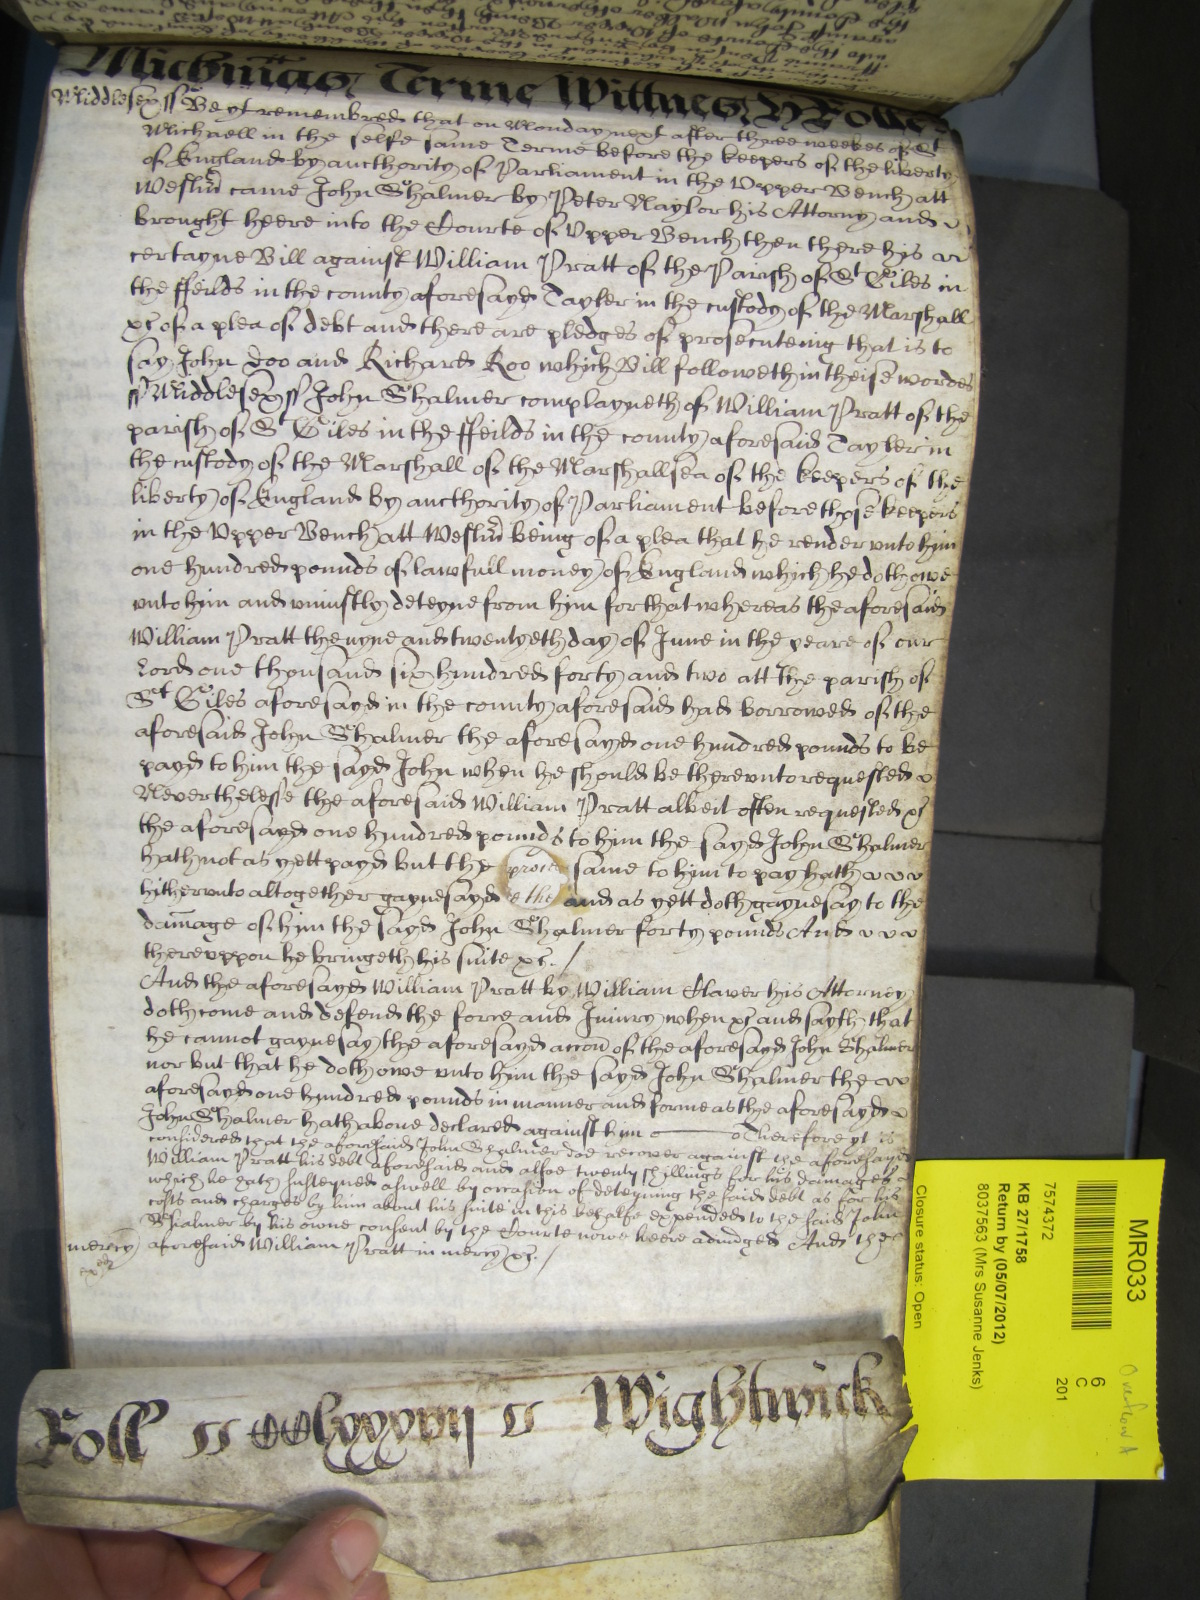 Michmas Terme Wittnes H Rolle
Middlesex ss Be yt remembred that on Monday next after three weekes of St
Michaell in the selfe same Terme before the keepers of the liberty
of England by aucthority of Parliament in the Upper Bench att
Westmr came John Shalmer by Peter Naylor his Attorny and
brought heere into the Courte of Upper Bench then there his
certayne Bill against William Pratt of the Parish of St Giles in
the ffeilds in the county aforesayd Tayler in the custody of the Marshall
&c of a plea of debt and there are pledges of prosecuteing that is to
say John Doo and Richard Roo which Bill followeth in theise wordes
ss Middlesex ss John Shalmer complayneth of William Pratt of the
parish of St Giles in the ffeilds in the county aforesaid Tayler in
the custody of the Marshall of the Marshallsea of the keepers of the
liberty of England by aucthority of Parliament before those keepers
in the Upper Bench att Westmr being of a plea that he render unto him
one hundred pounds of lawfull money of England which he doth owe
unto him and uniustly deteyne from him for that whereas the aforesaid
William Pratt the nyne and twentyeth day of June in the yeare of our
Lord one thousand six hundred forty and two att the parish of
St Giles aforesayd in the county aforesaid had borrowed of the
aforesaid John Shalmer the aforesayd one hundred pounds to be
payd to him the sayd John when he should be thereunto requested
Neverthelesse the aforesaid William Pratt albeit often requested &c
the aforesayd one hundred pounds to him the sayd John Shalmer
hath not as yett payd but the same to him to pay hath
hitherunto altogether gaynesayd and as yett doth gaynesay to the
damage of him the sayd John Shalmer forty pounds And
thereuppon he bringeth his suite &c. /
And the aforesayd William Pratt by William Claver his Attorney
doth come and defend the force and Iniury when &c and sayth that
he cannot gaynesay the aforesayd accon of the aforesayd John Shalmer
nor but that he doth owe unto him the sayd John Shalmer the
aforesayd one hundred pounds in manner and forme as the aforesayd
John Shalmer hath above declared against him Therefore yt is
considered that the aforesaid John Shalmer doe recover against the aforesayd
William Pratt his debt aforesaid and alsoe twenty shillings for his damages
which he hath susteyned aswell by occasion of deteyning the said debt as for his
costs and charges by him about his suite in this behalfe expended to the said John
Shalmer by his owne consent by the Courte nowe heere adiudged And the
mercy aforesaid William Pratt in mercy &c. /
Roll Wightwick
MR033
6
C
201
7574372
KB 27/1758
Return by (05/07/2012)
8037583 (Mrs Susanne Jenks)
Closure status: Open
Overflow A